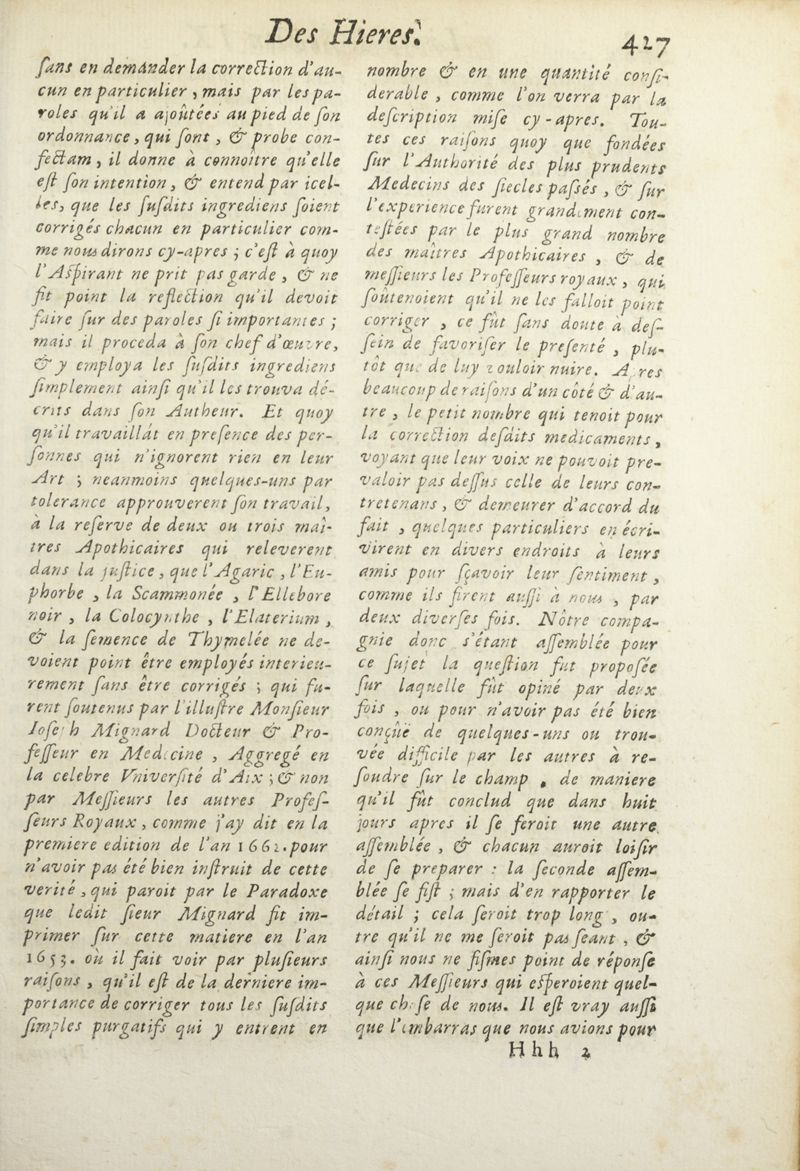 Des Hieres.
427
sans en demander la correction d'au-
cun en particulier, mais par les pa-
roles qu'il a ajoûtées au pied de son
ordonnance, qui sont, & probe con-
fectam, il donne à connoitre qu'elle
est son intention, & entend par icel-
les, que les susdits ingrediens soient
corrigés chacun en particulier com-
me nous dirons cy-apres ; c'est à quoy
l'Aspirant ne prit pas garde, & ne
fit point la reflection qu'il devoit
faire sur des paroles si importantes ;
mais il proceda à son chef d'œuvre,
& y employa les susdits ingrediens
simplement ainsi qu'il les trouva dé-
crits dans son Autheur. Et quoy
qu'il travaillât en presence des per-
sonnes qui n'ignorent rien en leur
Art ; neanmoins quelques-uns par
tolerance approuverent son travail,
à la reserve de deux ou trois maî-
tres Apothicaires qui releverent
dans la justice, que l'Agaric, l'Eu-
phorbe, la Scammonée, l'Ellebore
noir, la Colocynthe, l'Elaterium,
& la semence de Thymelée ne de-
voient point être employés interieu-
rement sans être corrigés ; qui fu-
rent soutenus par l'illustre Monsieur
Joseph Mignard Docteur & Pro-
fesseur en Medecine, Aggregé en
la celebre Vniversité d'Aix ; & non
par Messieurs les autres Profes-
seurs Royaux, comme j'ay dit en la
premiere edition de l'an 1662. pour
n'avoir pas été bien instruit de cette
verité, qui paroit par le Paradoxe
que ledit sieur Mignard fit im-
primer sur cette matiere en l'an
1653. où il fait voir par plusieurs
raisons, qu'il est de la derniere im-
portance de corriger tous les susdits
simples purgatifs qui y entrent en
nombre & en une quantité consi-
derable, comme l'on verra par la
description mise cy-apres. Tou-
tes ces raisons quoy que fondées
sur l'Authorité des plus prudents
Medecins des siecles passés, & sur
l'experience furent grandement con-
testées par le plus grand nombre
des maîtres Apothicaires, & de
messieurs les Professeurs royaux, qui
soûtenoient qu'il ne les falloit point
corriger, ce fût sans doute à des-
sein de favoriser le presenté, plu-
tôt que de luy vouloir nuire. Apres
beaucoup de raisons d'un côté & d'au-
tre, le petit nombre qui tenoit pour
la correction desdits medicaments,
voyant que leur voix ne pouvoit pre-
valoir pas dessus celle de leurs con-
tretenans, & demeurer d'accord du
fait, quelques particuliers en écri-
virent en divers endroits à leurs
amis pour sçavoir leur sentiment,
comme ils firent aussi à nous, par
deux diverses fois. Nôtre compa-
gnie donc s'étant assemblée pour
ce sujet la question fut proposée
sur laquelle fût opiné par deux
fois, ou pour n'avoir pas été bien
conçûe de quelques-uns ou trou-
vée difficile par les autres à re-
soudre sur le champ, de maniere
qu'il fût conclud que dans huit
jours apres il se feroit une autre
assemblée, & chacun auroit loisir
de se preparer : la seconde assem-
blée se fist ; mais d'en rapporter le
détail ; cela seroit trop long, ou-
tre qu'il ne me seroit pas seant, &
ainsi nous ne fismes point de réponse
à ces Messieurs qui esperoient quel-
que chose de nous. Il est vray aussi
que l'embarras que nous avions pour
Hhh 2